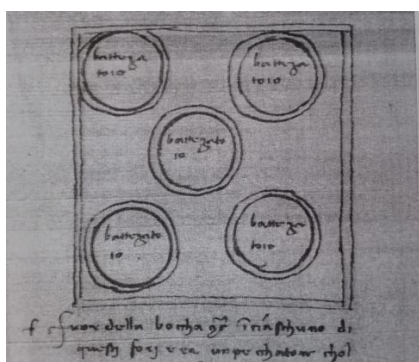 batteza
toio
batteza
toio
battezato
io
battezato
io
batteza
toio
fuor della bocha ciaschuno di
questi forj era un chol